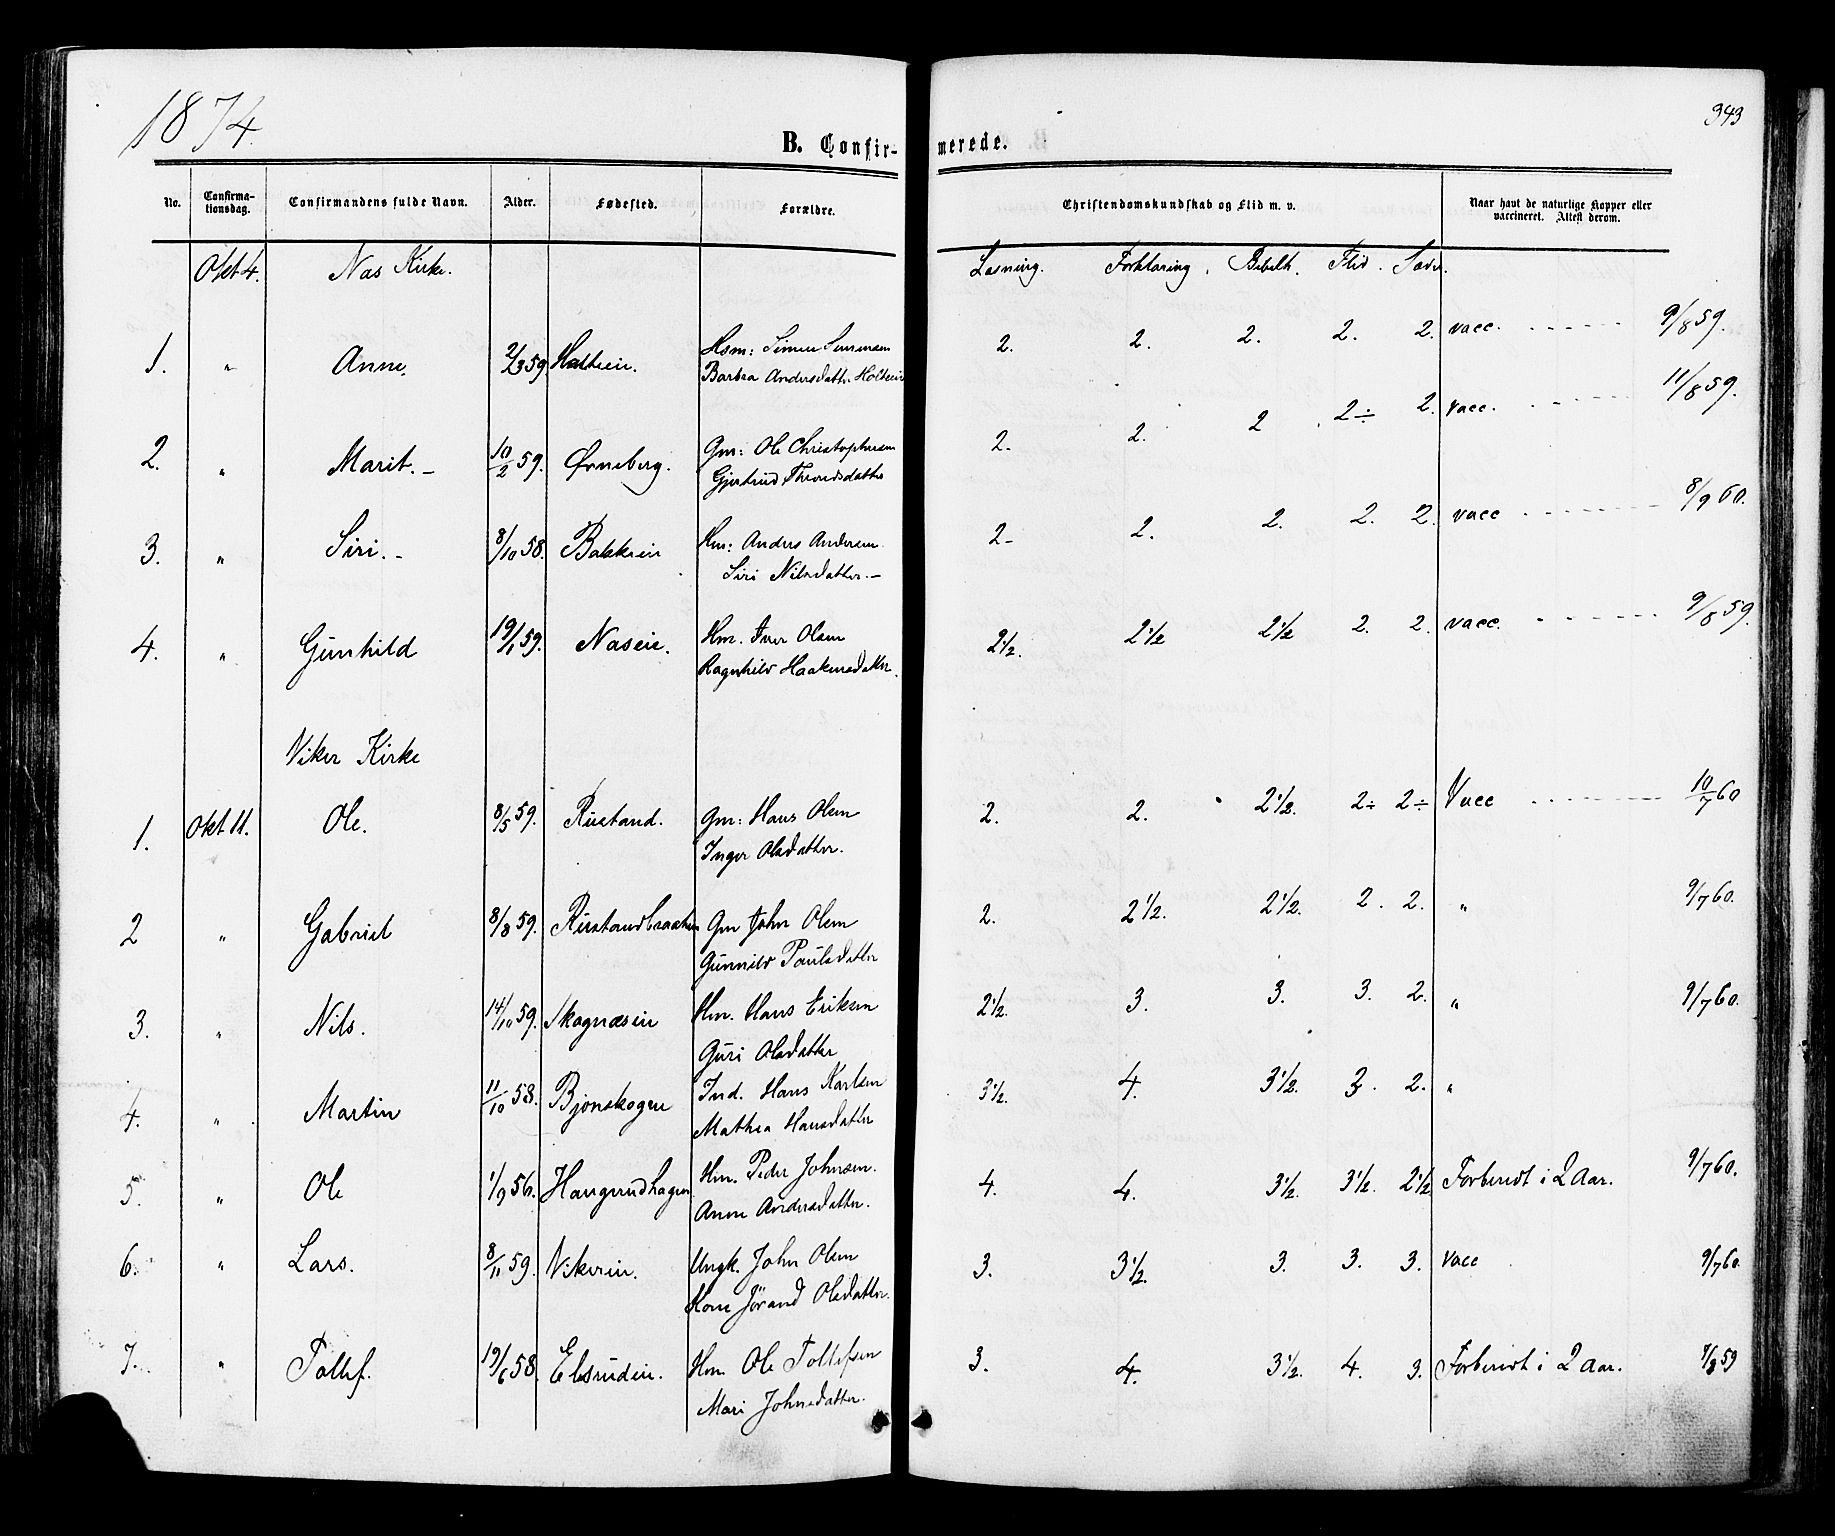 1874.
343
B. Confir-
merede.
No.
Confirma-
tionsdag.
Confirmandens fulde Navn.
Alder.
Fødested.
Forældre.
Christendomskundskab og Flid m. v.
Naar havt de naturlige Kopper eller
vaccineret. Attest derom.
Okt 4. Næs Kirke. Læsning. Forklaring. Bibelh. Flid. Sæder.
1. " Anne. 2/3 59 Holteie. Hsm: Simen Simensen 2. 2. 2. 2. 2. vacc. 9/8 59.
Barbra Andersdatter Holteie
2. " Marit. - 10/2 59. Ørneberg. Gm: Ole Christophersen 2. 2. 2 2÷ 2. vacc. 11/8 59.
Gjertrud Throndsdatter
3. " Siri. - 8/10 58. Bakkeie Hm: Anders Andersen 2- 2. 2. 2. 2. vacc 8/9 60.
Siri Nilsdatter. -
4. " Gunhild 19/1 59. Næseie. Hm. Iver Olsen 2 1/2. 2 1/2 2 1/2 2. 2. vacc. 9/8 59.
Ragnhild Haakensdatter.
Viker Kirke
1. Okt 11. Ole. 8/5 59. Rustand. Gm: Hans Olsen 2. 2. 2 1/2. 2÷ 2÷ Vacc 10/7 60
Inger Olsdatter.
2 " Gabriel 8/8 59. Rustandbraaten Gm John Olsen 2. 2 1/2. 2 1/2. 2. 2. " 9/7 60.
Gunnild Paulsdatter
3. " Nils. 14/10 59. Skognæseie Hm. Hans Eriksen 2 1/2. 3. 3. 3. 2. " 9/7 60.
Guri Olsdatter
4. " Martin 11/10 58. Bjønskogen Ind. Hans Karlsen 3 1/2. 4. 3 1/2. 3. 2. "
Mathea Hansdatter
5. " Ole 1/9 56. Haugerudhagen Hm. Peder Johnsen. 4. 4. 3 1/2. 3 1/2. 2 1/2 Forberedt i 2 Aar. 9/7 60.
Anne Andersdatter.
6. " Lars. 8/11 59. Vikereie. Ungk. John Olsen 3. 3 1/2. 3. 3. 3. vacc 9/7 60.
Kone Jørand Olsdatter.
7. " Tollef. 19/6 58. Elsrudeie. Hm. Ole Tollefsen 3. 4. 3 1/2. 4. 3. Forberedt i 2 Aar. 9/8 59
Mari Johnsdatter.